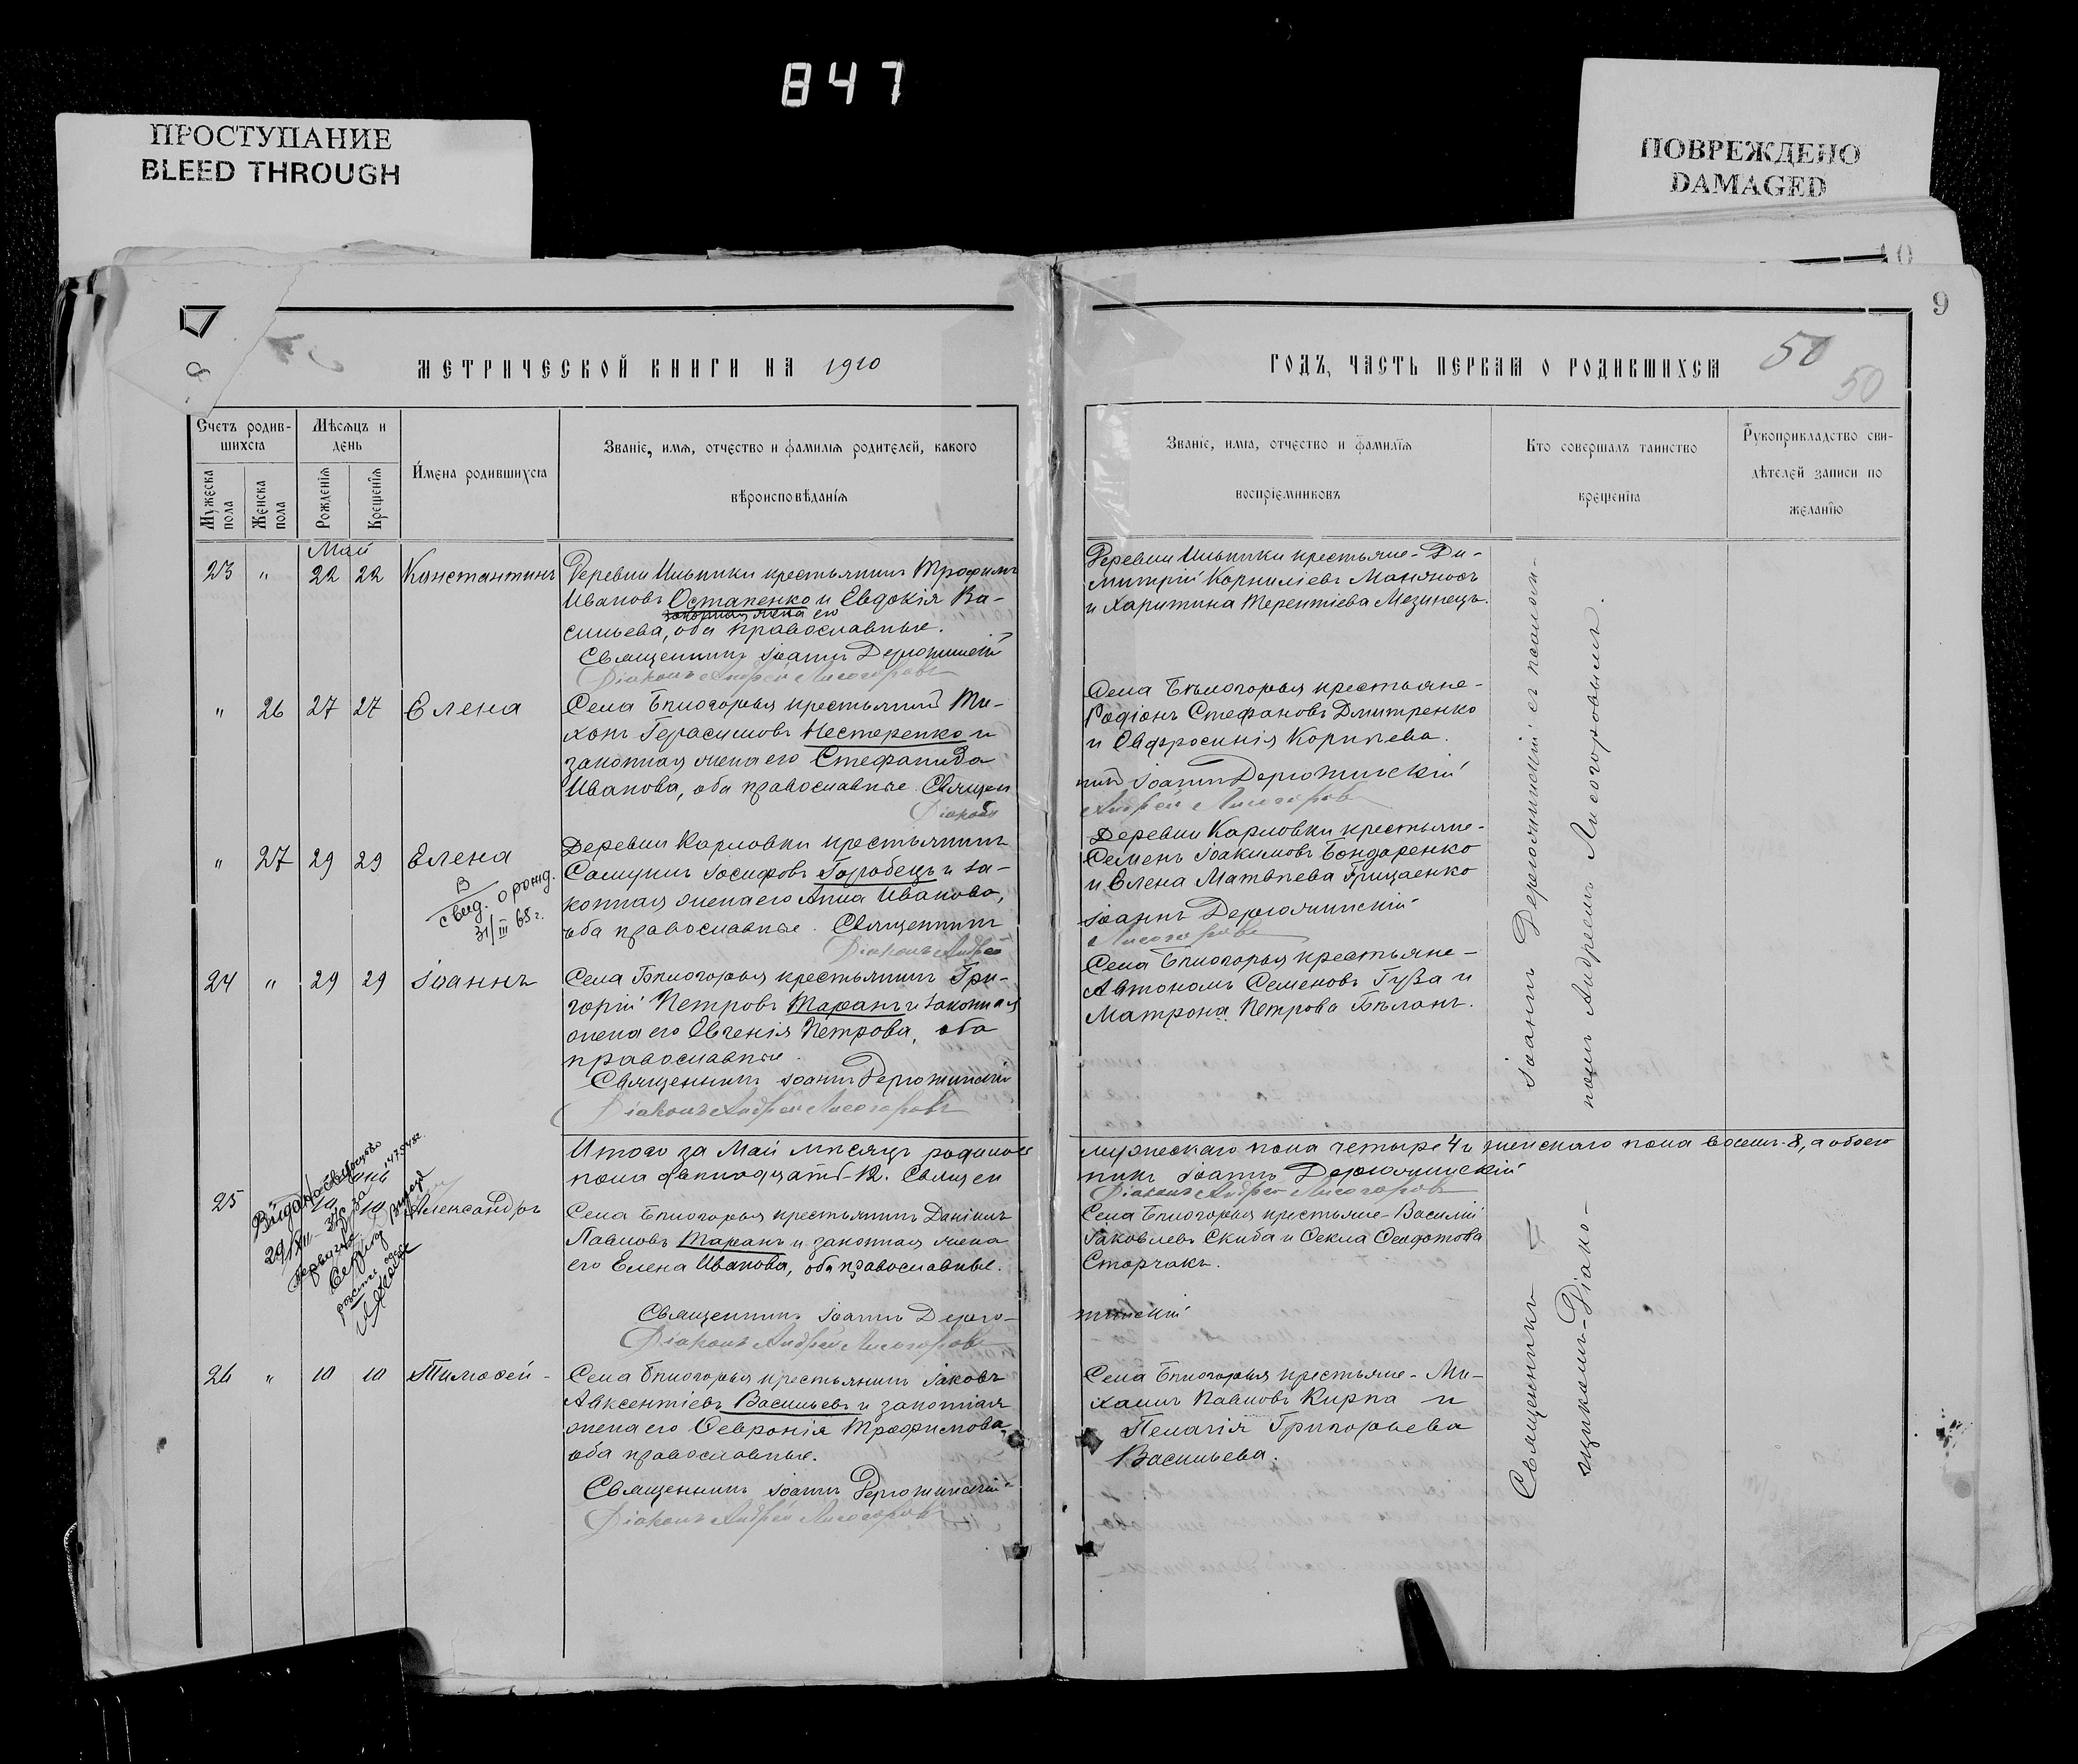 847
ПРОСТУПАНИЕ
BLEED THROUGH
ПОВРЕЖДЕНО
DAMAGED
10
9
8
МЕТРИЧЕСКОЙ КНИГИ НА 1910
ГОДЪ, ЧАСТЬ ПЕРВАЯ О РОДИВШИХСЯ
50
50
Счетъ родив-
шихся
Мѣсяцъ и
день
Мужеска пола
Женска пола
Рожденія
Крещенія
Имена родившихся
Званіе, имя, отчество и фамилія родителей, какого
вѣроисповѣданія
Званіе, имя, отчество и фамилія
воспріемниковъ
Кто совершалъ таинство
крещенія
Рукоприкладство сви-
дѣтелей записи по
желанію
Май
23 " 22 22 Константинъ
Деревни Ильинки крестьянинъ Трофимъ
Ивановъ Остапенко и Евдокія Ва-
законная жена его
сильева, оба православные.
Священникъ Іоаннъ Дерюжинскій
Діаконъ Андрей Лисогоровъ
Деревни Ильинки крестьяне - Ди-
митрій Корниліевъ
и Харитина Терентіева Мезинецъ.
" 26 27 27 Елена
Села Бѣлогорья крестьянинъ Ти-
хонъ Герасимовъ Нестеренко и
законная жена его Стефанида
Иванова, оба православные. Священ
Діаконъ
Села Бѣлогорья крестьяне -
Родіонъ Стефановъ Дмитренко
и Евфросинія Корнѣева.
никъ Іоаннъ Дерюжинскій
Андрей Лисогоровъ
" 27 29 29 Елена
В
свид. о рожд.
31/III 65 г.
Деревни Карловки крестьянинъ
Самуилъ Іосифовъ Горобецъ и за-
конная жена его Анна Иванова,
оба православные. Священникъ
Діаконъ Андрей
Деревни Карловки крестьяне -
Семенъ Іоакимовъ Бондаренко
и Елена Матвѣева Грищенко
Іоаннъ Дерюжинскій
Лисогоровъ
24 " 29 29 Іоаннъ
Села Бѣлогорья крестьянинъ Гри-
горій Петровъ Таранъ и законная
жена его Евгенія Петрова, оба
православные.
Священникъ Іоаннъ Дерюжинскій
Діаконъ Андрей Лисогоровъ
Села Бѣлогорья крестьяне -
Автономъ Семеновъ Гуза и
Матрона Петрова Бѣланъ.
Итого за Май мѣсяцъ родилось
мужескаго пола четыре 4 и женскаго пола восемь - 8, а обоего
пола двѣнадцать - 12. Священ
никъ Іоаннъ Дерюжинскій
Діаконъ Андрей Лисогоровъ
25 10 10 Александръ
Села Бѣлогорья крестьянинъ Даніилъ
Павловъ Таранъ и законная жена
его Елена Иванова, оба православные.
Священникъ Іоаннъ Дерю-
Діаконъ Андрей Лисогоровъ
Села Бѣлогорья крестьяне - Василій
Іаковлевъ Скиба и Ѳекла Ѳеодотова
Сторчакъ.
жинскій
26 " 10 10 Тимоѳей -
Села Бѣлогорья крестьянинъ Іаковъ
Авксентіевъ Васильевъ и законная
жена его Ѳевронія Трофимова,
оба православные.
Священникъ Іоаннъ Дерюжинскій
Діаконъ Андрей Лисогоровъ
Села Бѣлогорья крестьяне - Ми-
хаилъ Павловъ Кирпа и
Пелагія Григорьева
Васильева.
Священникъ Іоаннъ Дерюжинскій съ псалом-
щикомъ - Діако-
номъ Андреемъ Лисогоровымъ.